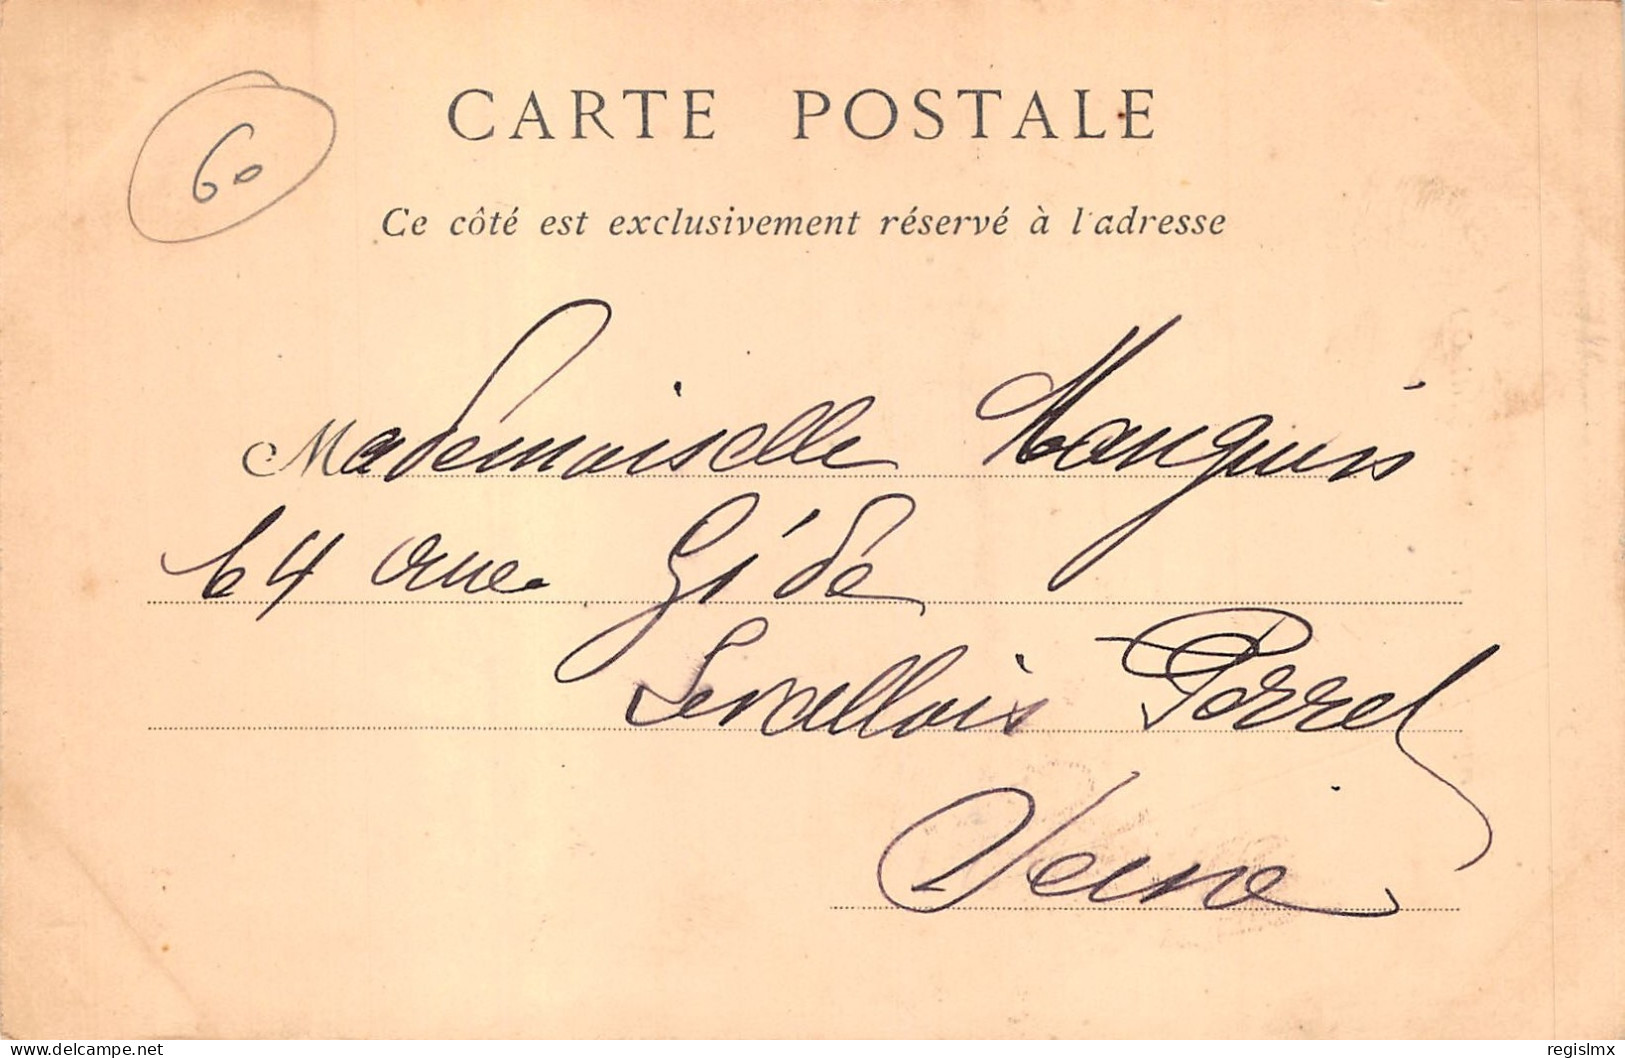 60
CARTE POSTALE
Ce côté est exclusivement réservé à l'adresse
Mademoiselle
64 rue Gide
Levallois Perret
Seine
delcampe.net
regislmx